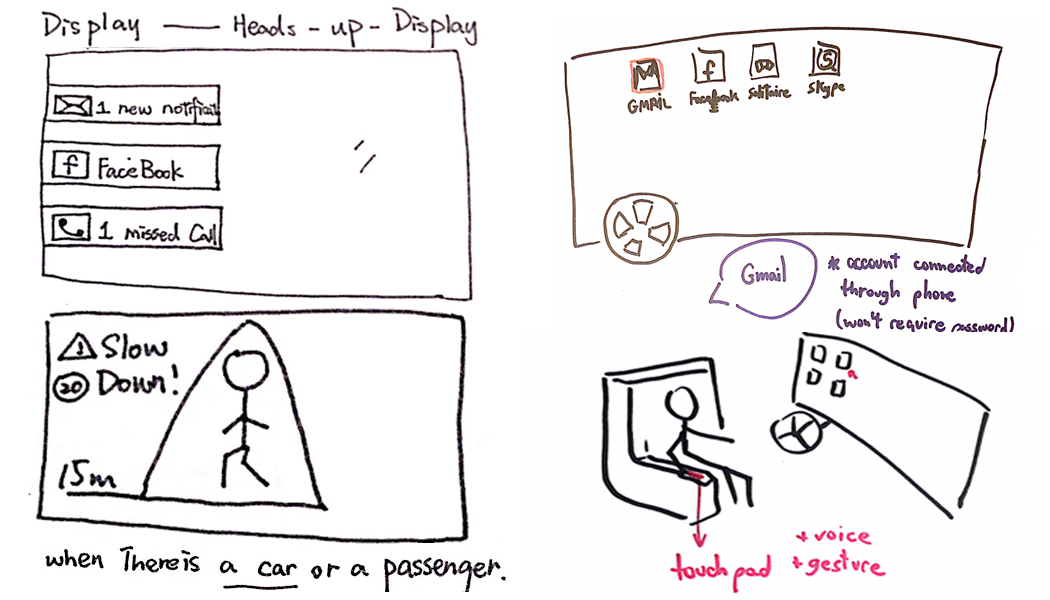 Display — Heads-up-Display
1 new notificat
f FaceBook
1 missed Call
! Slow
20 Down!
15m
when There is a car or a passenger.
f
S
GMAIL
Facebook
Solitaire
Skype
Gmail
* account connected
through phone
(won't require password)
touchpad
+ voice
+ gesture